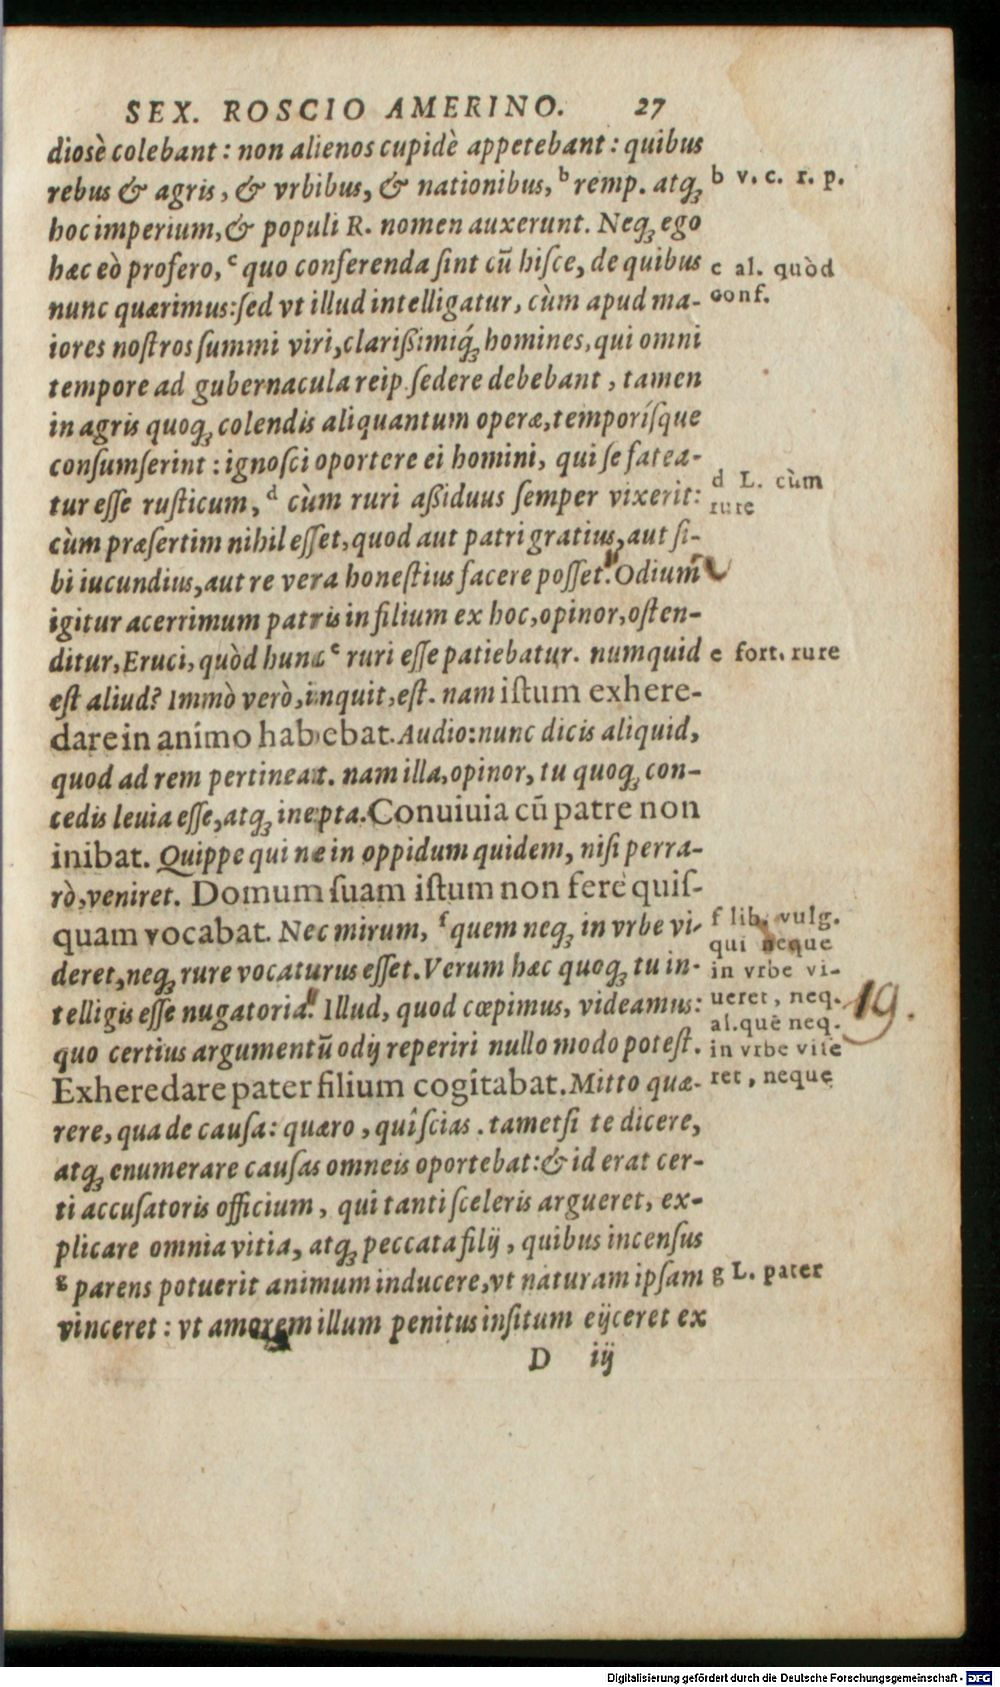 SEX. ROSCIO AMERINO. 27
diosè colebant: non alienos cupidè appetebant: quibus
rebus & agris, & vrbibus, & nationibus, b remp. atq;
b v. c. r. p.
hoc imperium, & populi R. nomen auxerunt. Neq; ego
hæc eò profero, c quo conferenda sint cū hisce, de quibus
c al. quòd
conf.
nunc quærimus: sed vt illud intelligatur, cùm apud ma-
iores nostros summi viri, clarißimiq́; homines, qui omni
tempore ad gubernacula reip. sedere debebant, tamen
in agris quoq; colendis aliquantum operæ, temporísque
consumserint: ignosci oportere ei homini, qui se fatea-
tur esse rusticum, d cùm ruri aßiduus semper vixerit:
d L. cùm
rure
cùm præsertim nihil esset, quod aut patri gratius, aut si-
bi iucundius, aut re vera honestius facere posset. Odium
igitur acerrimum patris in filium ex hoc, opinor, osten-
ditur, Eruci, quòd hunc e ruri esse patiebatur. numquid
e fort. rure
est aliud? Immò verò, inquit, est. nam istum exhere-
dare in animo habebat. Audio: nunc dicis aliquid,
quod ad rem pertineat. nam illa, opinor, tu quoq; con-
cedis leuia esse, atq; inepta. Conuiuia cū patre non
inibat. Quippe qui ne in oppidum quidem, nisi perra-
rò, veniret. Domum suam istum non ferè quis-
quam vocabat. Nec mirum, f quem neq; in vrbe vi-
deret, neq; rure vocaturus esset. Verum hæc quoq; tu in-
telligis esse nugatoria. Illud, quod cœpimus, videamus:
f lib. vulg.
qui neque
in vrbe vi-
ueret, neq.
al. quē neq.
in vrbe vite
ret, neque
19.
quo certius argumentū odij reperiri nullo modo potest.
Exheredare pater filium cogitabat. Mitto quæ-
rere, qua de causa: quæro, quî scias. tametsi te dicere,
atq; enumerare causas omneis oportebat: & id erat cer-
ti accusatoris officium, qui tanti sceleris argueret, ex-
plicare omnia vitia, atq; peccata filij, quibus incensus
g parens potuerit animum inducere, vt naturam ipsam
g L. pater
vinceret: vt amorem illum penitus insitum eijceret ex
D iij
Digitalisierung gefördert durch die Deutsche Forschungsgemeinschaft - DFG